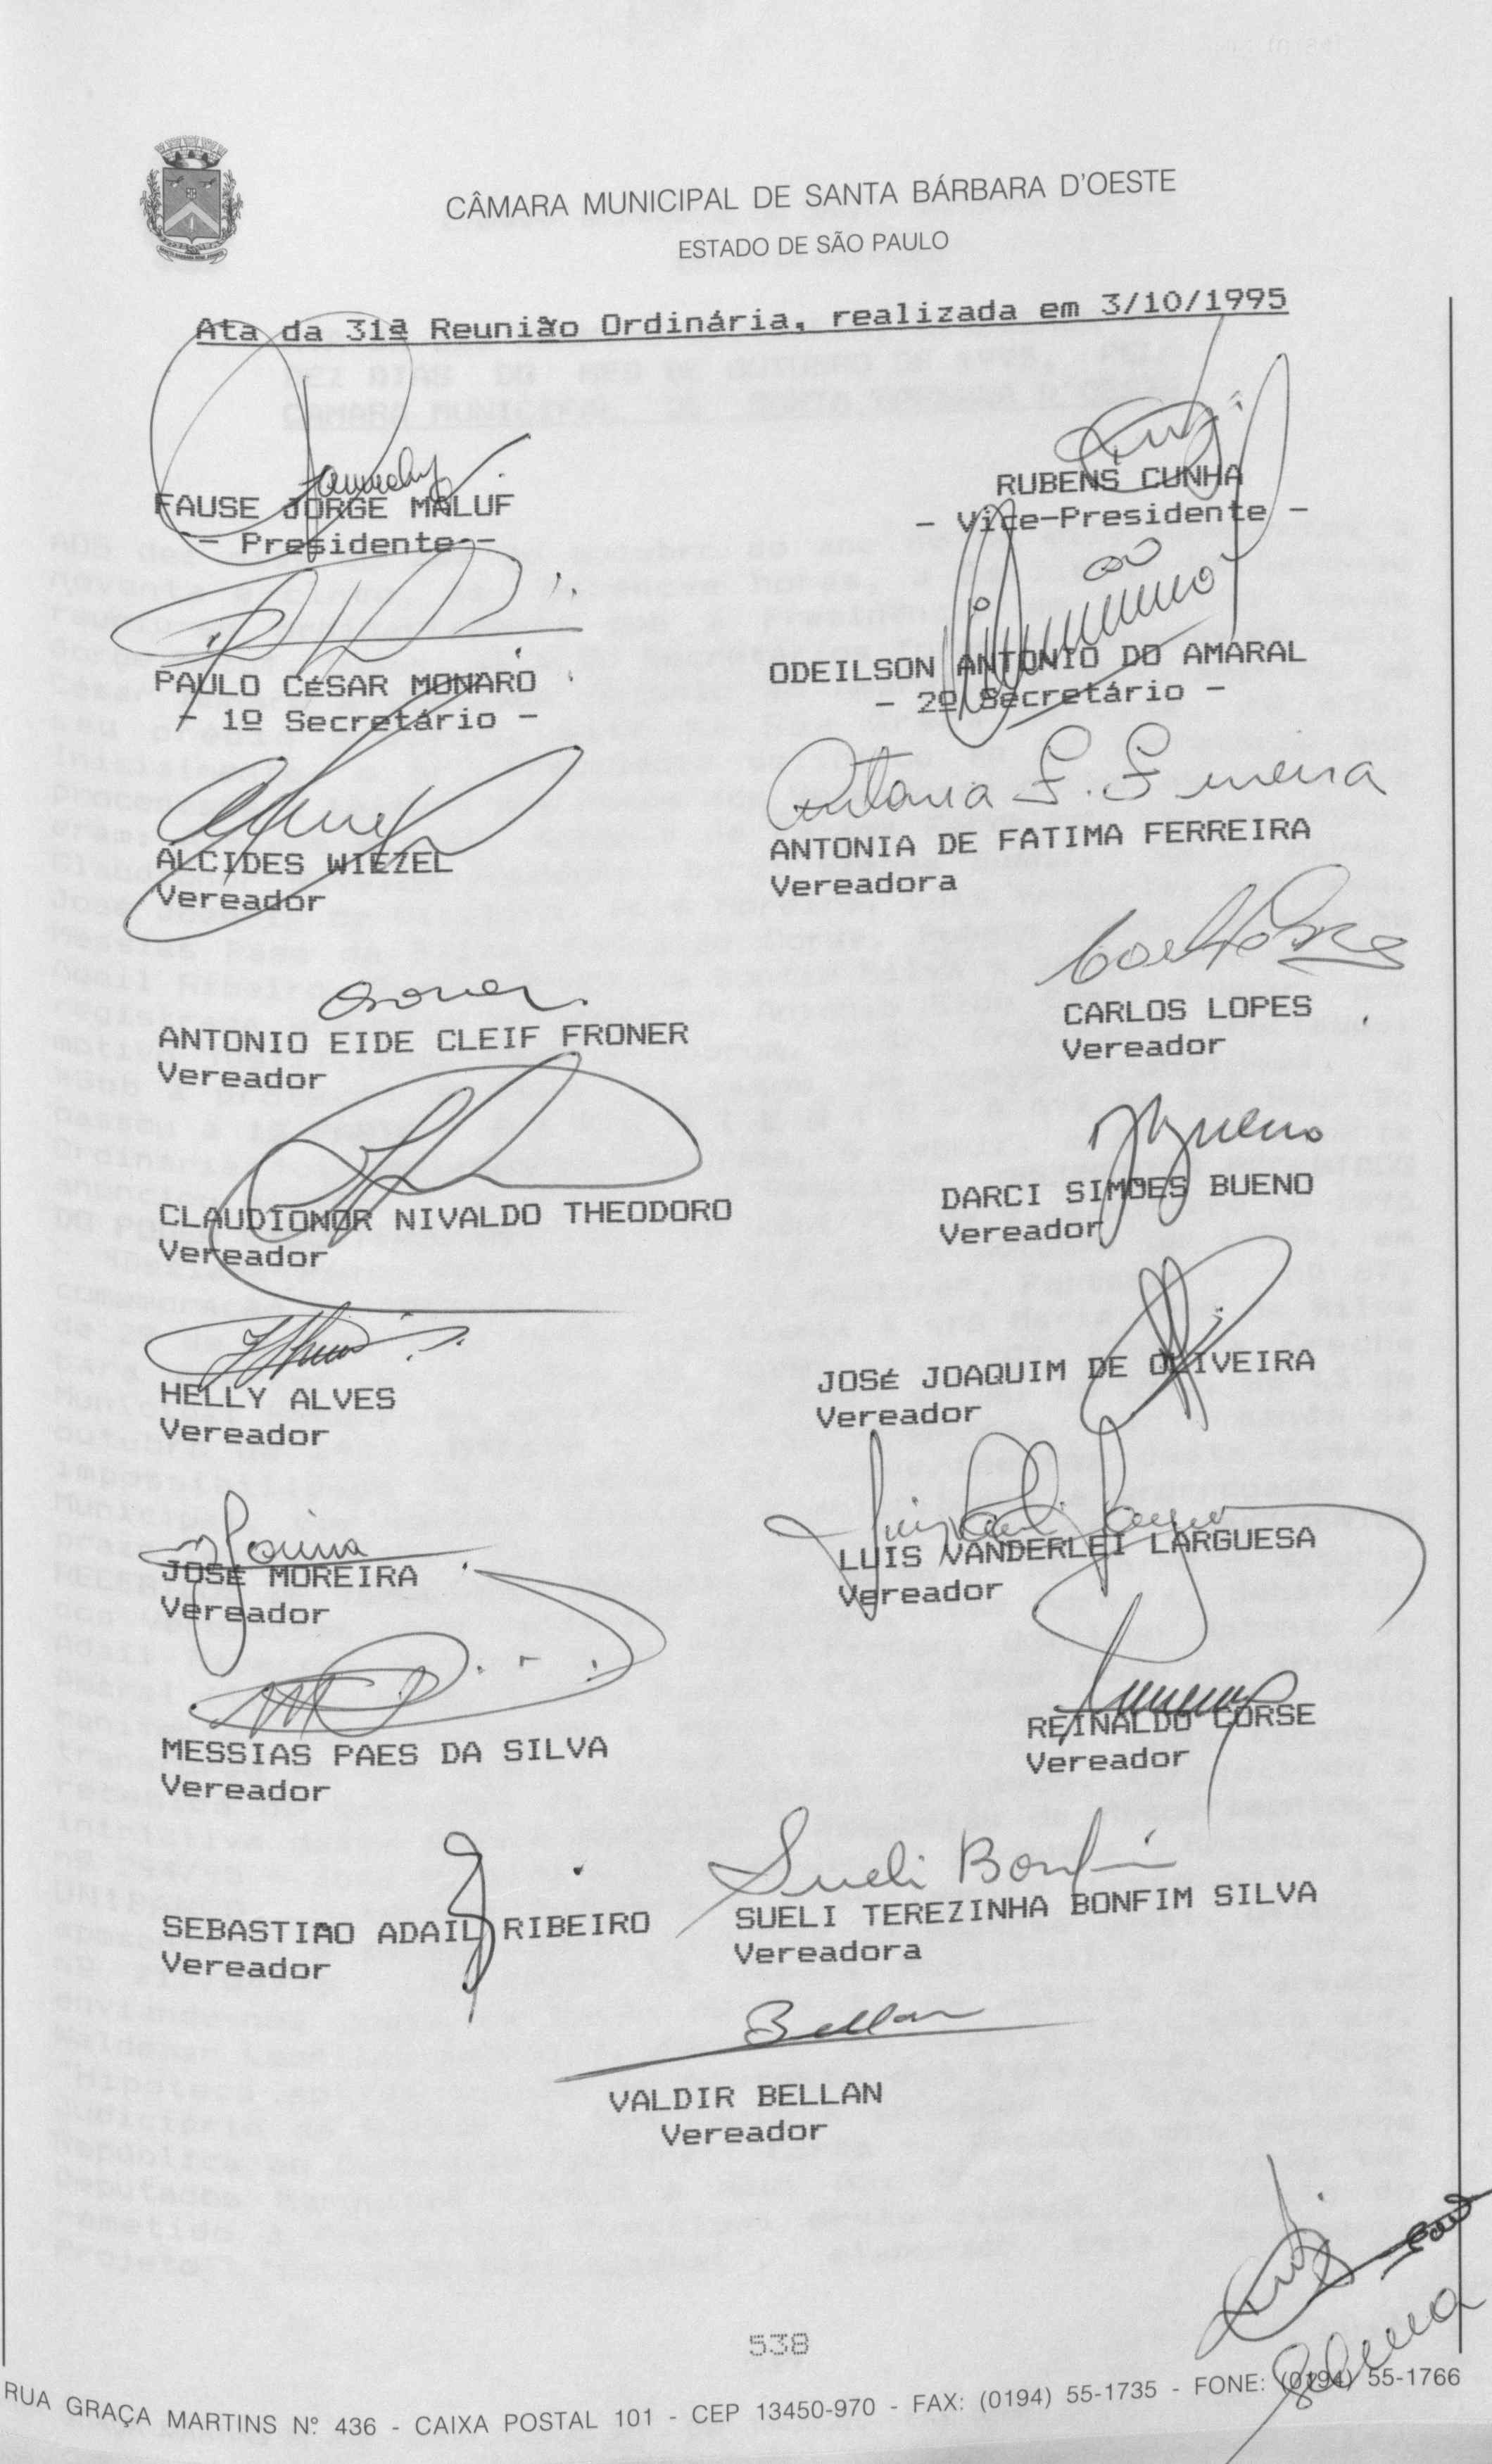 CÂMARA MUNICIPAL DE SANTA BÁRBARA D'OESTE
ESTADO DE SÃO PAULO
Ata da 31ª Reunião Ordinária, realizada em 3/10/1995
FAUSE JORGE MALUF
- Presidente -
RUBENS CUNHA
- Vice-Presidente -
PAULO CÉSAR MONARO
- 1º Secretário -
ODEILSON ANTONIO DO AMARAL
- 2º Secretário -
ALCIDES WIEZEL
Vereador
ANTONIA DE FATIMA FERREIRA
Vereadora
ANTONIO EIDE CLEIF FRONER
Vereador
CARLOS LOPES
Vereador
CLAUDIONOR NIVALDO THEODORO
Vereador
Bueno
DARCI SIMOES BUENO
Vereador
HELLY ALVES
Vereador
JOSÉ JOAQUIM DE OLIVEIRA
Vereador
JOSÉ MOREIRA
Vereador
LUIS VANDERLEI LARGUESA
Vereador
MESSIAS PAES DA SILVA
Vereador
REINALDO CORSE
Vereador
SEBASTIAO ADAIL RIBEIRO
Vereador
Sueli Bonfim
SUELI TEREZINHA BONFIM SILVA
Vereadora
Bellan
VALDIR BELLAN
Vereador
538
RUA GRAÇA MARTINS Nº 436 - CAIXA POSTAL 101 - CEP 13450-970 - FAX: (0194) 55-1735 - FONE: (0194) 55-1766